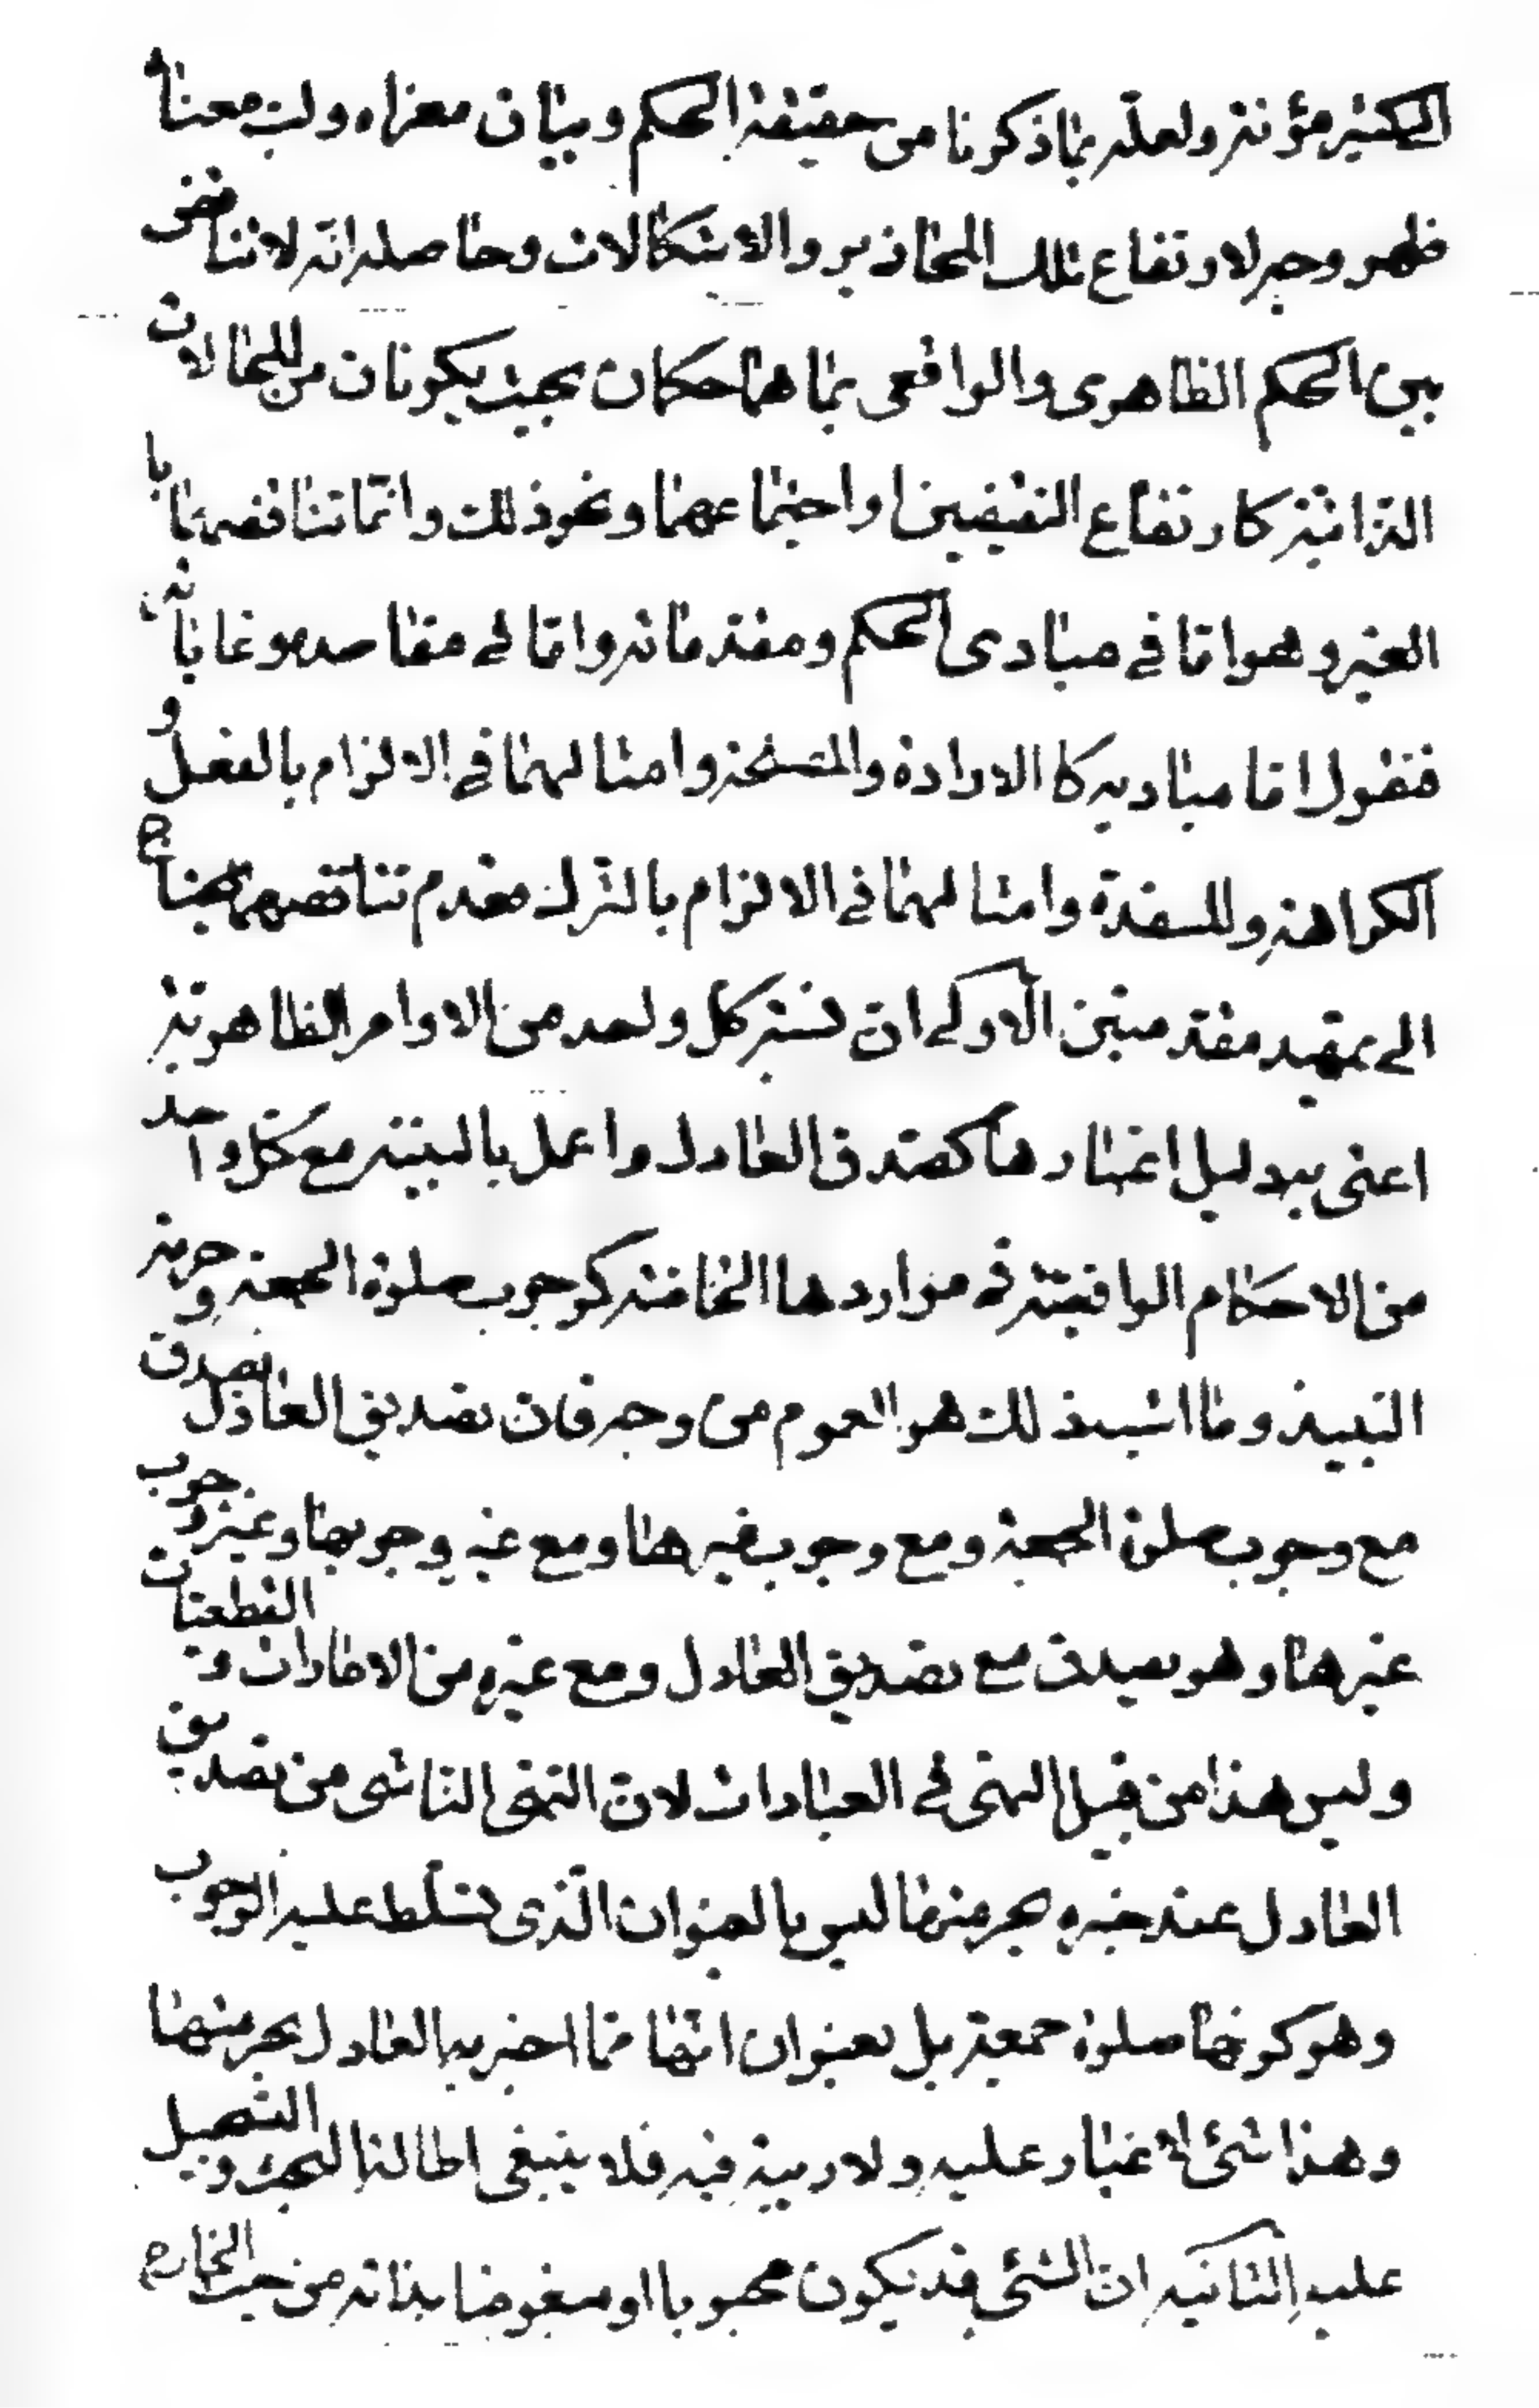 الكثير مؤنته ولعلّه بما ذكرنا من حقيقة الحكم وبيان مغزاه ولبّ معناه
ظهر وجه لارتفاع تلك المحاذير والاشكالات وحاصله انّه لا تناقض
بين الحكم الظاهرى والواقعى بما هما حكمان بحيث يكونان من المحالات
الذاتية كارتفاع النقيضين او اجتماعهما ونحو ذلك وانّما تناقضهما با
لغير وهو امّا فى مبادى الحكم ومقدماته وامّا فى مقاصده وغاياته
فنقول امّا مباديه كالارادة والمصلحة وامثالهما فى الالزام بالفعل و
الكراهة والمفسدة وامثالهما فى الالزام بالترك فعدم تناقضهما يحتاج
الى تمهيد مقدمتين الاولى ان نسبة كل واحد من الاوامر الظاهرية
اعنى به دليل اعتبارها كصدق العادل واعمل بالبينة مع كل واحد
من الاحكام الواقعية فى مواردها الخاصة كوجوب صلوة الجمعة وحرمة
النبيذ وما اشبه ذلك هو العموم من وجه فان تصديق العادل يصدق
مع وجوب صلوة الجمعة ومع وجوب غيرها ومع غير وجوبها ووجوب
غيرها وهو يصدق مع تصديق العادل ومع غيره من الامارات و القطعيات
وليس هذا من قبيل النهى فى العبادات لان النهى الناشى من تصديق
العادل عند خبره بحرمتها ليس بالعنوان الّذى تسلّط عليه الوجوب
وهو كونها صلوة جمعة بل بعنوان انّها ممّا اخبر به العادل بحرمتها
وهذا شئ لا غبار عليه ولا ريبة فيه فلا ينبغى اطالة البحث و التفصيل
عليه الثانية ان الشئ قد يكون محبوبا او مبغوضا بذاته من حيث الخارج